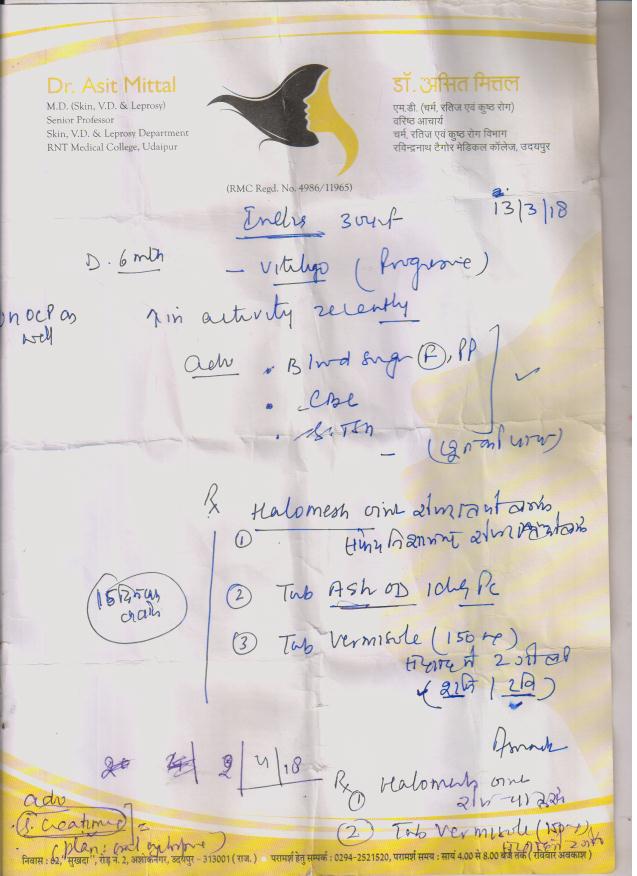 Dr. Asit Mittal
M.D. (Skin, V.D. & Leprosy)
Senior Professor
Skin, V.D. & Leprosy Department
RNT Medical College, Udaipur
डॉ. असित मित्तल
एम.डी. (चर्म, रतिज एवं कुष्ठ रोग)
वरिष्ठ आचार्य
चर्म, रतिज एवं कुष्ठ रोग विभाग
रविन्द्रनाथ टैगोर मेडिकल कॉलेज, उदयपुर
(RMC Regd. No. 4986/11965)
13/3/18
30yr f
D. 6 mth - Vitiligo (Progressive)
on OCP as well
↑ in activity recently
adv • Blood Sugar (F), PP
• CBC
• S.TSH
Rx
① Halomesh oint
② Tab Ash OD 1 daily PC
15 दिन बाद
③ Tab Vermisole (150 mg)
2 गोली
(शनि / रवि)
2/4/18
Rx
① Halomesh oint
② Tab Vermisole (150 mg)
adv
S. Creatinine
(plan: oral
निवास : 62, "सुखदा", रोड़ नं. 2, अशोकनगर, उदयपुर - 313001 ( राज. ) • परामर्श हेतु सम्पर्क : 0294-2521520, परामर्श समय : सायं 4.00 से 8.00 बजे तक ( रविवार अवकाश )